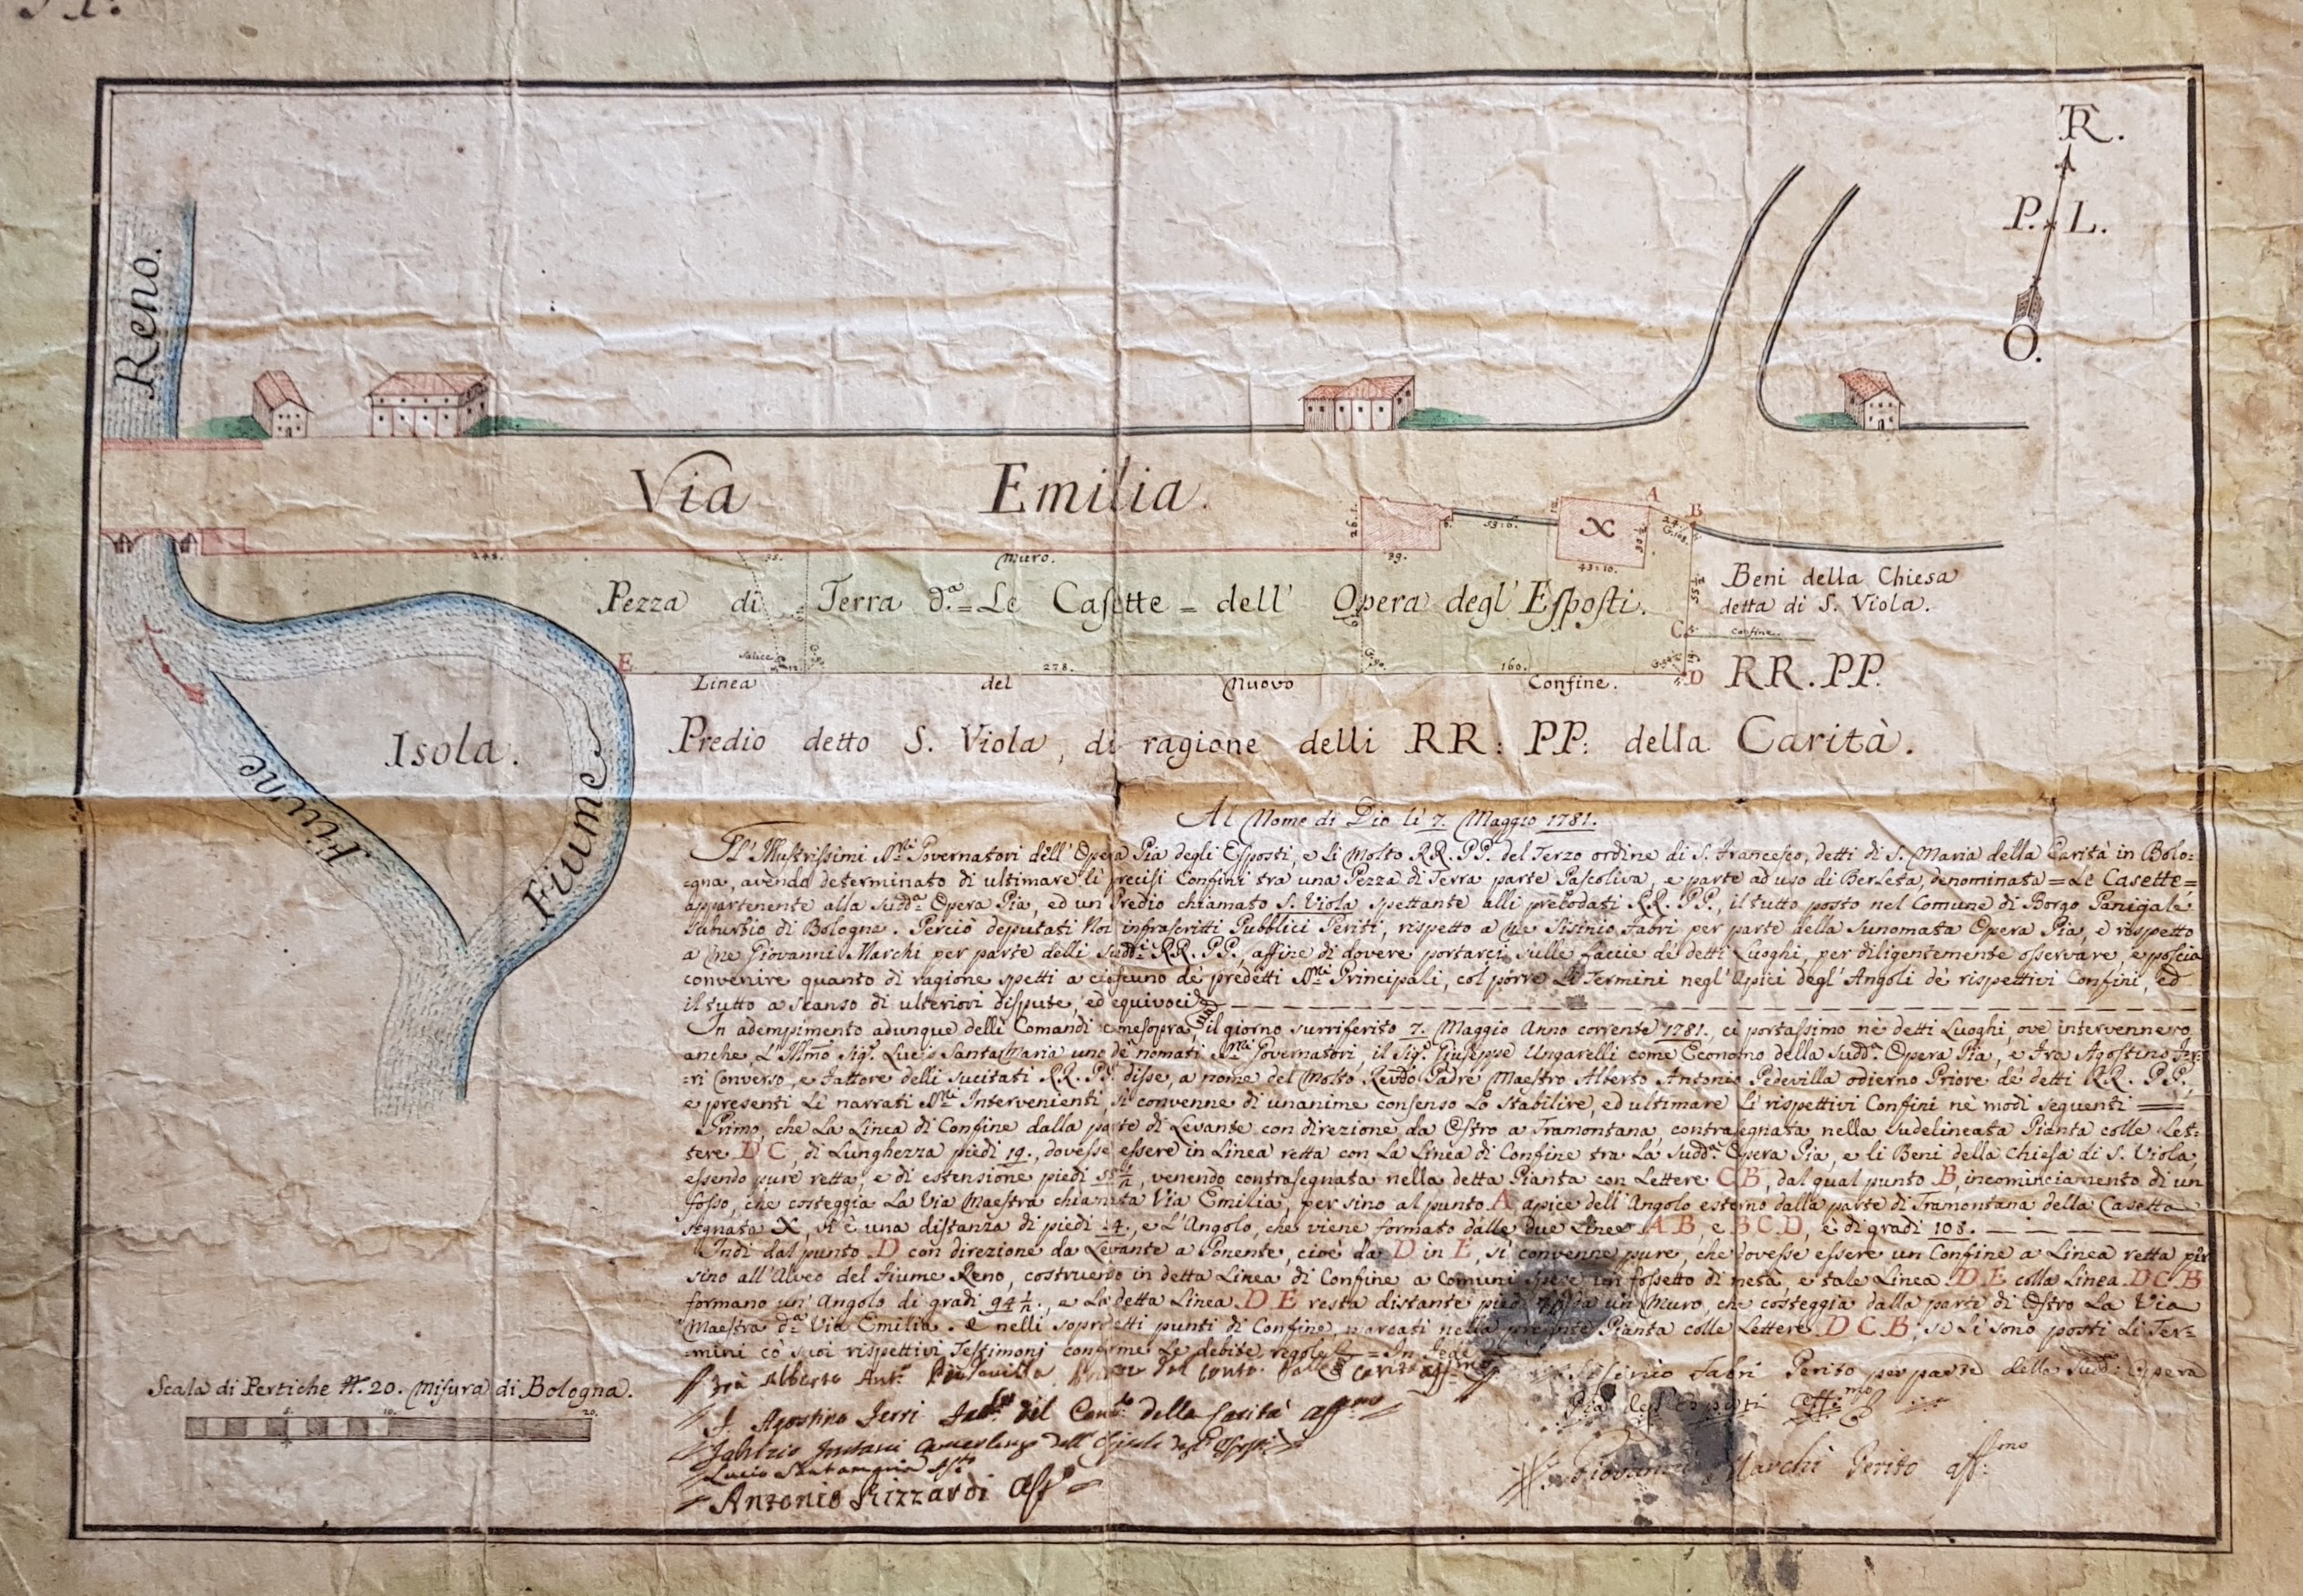 TR.
P. L.
O.
Reno.
Via Emilia.
A
B
26.1.
53:6.
X
43:10.
248.
Muro.
39.
Pezza di Terra d.ᵃ = Le Casette = dell' Opera degl' Esposti.
Beni della Chiesa
detta di S. Viola.
C
Confine.
E
Salice
278.
160.
D
RR. PP.
Linea del Nuovo Confine.
Predio detto S. Viola, di ragione delli RR: PP: della Carità.
Isola.
Fiume
Fiume
Al Nome di Dio li 7. Maggio 1781.
Gl' Illustrissimi SS.ri Governatori dell' Opera Pia degli Esposti, e li Molto RR. PP. del Terzo ordine di S. Francesco, detti di S. Maria della Carità in Bolo=
=gna, avendo determinato di ultimare li precisi Confini tra una Pezza di Terra parte Pascoliva, e parte ad uso di Berleta, denominata = Le Casette =
appartenente alla Sudd.ᵃ Opera Pia, ed un Predio chiamato S. Viola, spettante alli prelodati RR. PP., il tutto posto nel Comune di Borgo Panigale
Suburbio di Bologna. Perciò deputati Noi infrascritti Pubblici Periti, rispetto a me Sisinio Fabri per parte della Sunomata Opera Pia, e rispetto
a me Giovanni Marchi per parte delli Sudd.i RR. PP. affine di dovere portarci sulle faccie de' detti Luoghi, per diligentemente osservare, e poscia
convenire quanto di ragione spetti a ciascuno de' predetti SS.ri Principali, col porre Li Termini negl' Apici degl' Angoli de' rispettivi Confini, ed
il tutto a scanso di ulteriori dispute, ed equivoci
In adempimento adunque delli Comandi comesopra, il giorno surriferito 7. Maggio Anno corrente 1781. ci portassimo ne' detti Luoghi, ove intervennero
anche, L' Illmo Sig.r Lucio Santa Maria uno de' nomati SS.ri Governatori, il Sig.r Giuseppe Ungarelli come Economo della Sudd.ᵃ Opera Pia, e Fra Agostino Fer=
=ri Converso, e Fattore delli sucitati RR. PP. disse, a nome del Molto Revdo Padre Maestro Alberto Antonio Pedevilla odierno Priore de' detti RR. PP.,
e presenti Li narrati SS.ri Intervenienti, si convenne di unanime consenso Lo stabilire, ed ultimare Li rispettivi Confini ne' modi seguenti
Primo, che La Linea di Confine dalla parte di Levante con direzione da Ostro a Tramontana, contrasegnata nella sudelineata Pianta colle Let=
tere D C, di Lunghezza piedi 19., dovesse essere in Linea retta con La Linea di Confine tra La Sudd.ᵃ Opera Pia, e li Beni della Chiesa di S. Viola,
essendo pure retta, e di estensione piedi 55 ½, venendo contrasegnata nella detta Pianta con Lettere C B, dal qual punto B, incominciamento di un
fosso, che costeggia La Via Maestra chiamata Via Emilia, per sino al punto A apice dell' Angolo esterno dalla parte di Tramontana della Casetta
segnata X, vi è una distanza di piedi 24., e L'Angolo, che viene formato dalle due Linee A B, e B C D, è di gradi 108.
Indi dal punto D con direzione da Levante a Ponente, cioè da D in E, si convenne pure, che dovesse essere un Confine a Linea retta per
sino all' Alveo del Fiume Reno, costruendo in detta Linea di Confine a Comuni spese un fossetto di netà, e tale Linea D E colla Linea D C B
formano un' Angolo di gradi 94 ½., e La detta Linea D E resta distante piedi da un Muro, che costeggia dalla parte di Ostro La Via
Maestra d.ᵃ Via Emilia. E nelli sopradetti punti di Confine, marcati nella presente Pianta colle Lettere D C B, si Li sono posti Li Ter=
=mini co' suoi rispettivi Testimonj conforme Le debite regole = In Fede
Frà Alberto Ant.o Pedevilla Priore del Conto della Carità aff.mo
F. Agostino Ferri Fat.re del Con.to della Carità aff.mo
Lucio Santamaria
Antonio Rizzardi Aff.
Sisinio Fabri Perito per parte della Sudd. Opera
Pia degl' Esposti Aff.mo
Giovanni Marchi Perito aff.mo
Scala di Pertiche N. 20. Misura di Bologna.
5. 10. 20.